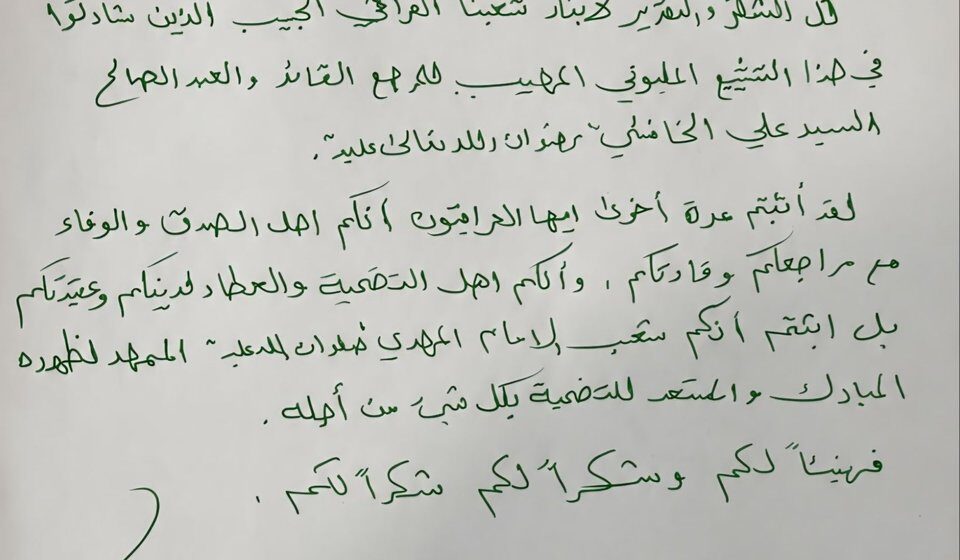 كل الشكر والتقدير لأبناء شعبنا العراقي الحبيب الذين شاركوا
في هذا التشييع المليوني المهيب للمرجع القائد والعبد الصالح
السيد علي الخامنئي "رضوان الله تعالى عليه".
لقد أثبتم مرة أخرى ايها العراقيون أنكم اهل الصدق والوفاء
مع مراجعكم وقادتكم، وأنكم اهل التضحية والعطاء لدينكم وعقيدتكم
بل اثبتم أنكم شعب الامام المهدي "صلوات الله عليه" الممهد لظهوره
المبارك والمستعد للتضحية بكل شيء من أجله.
فهنيئاً لكم وشكراً لكم شكراً لكم.